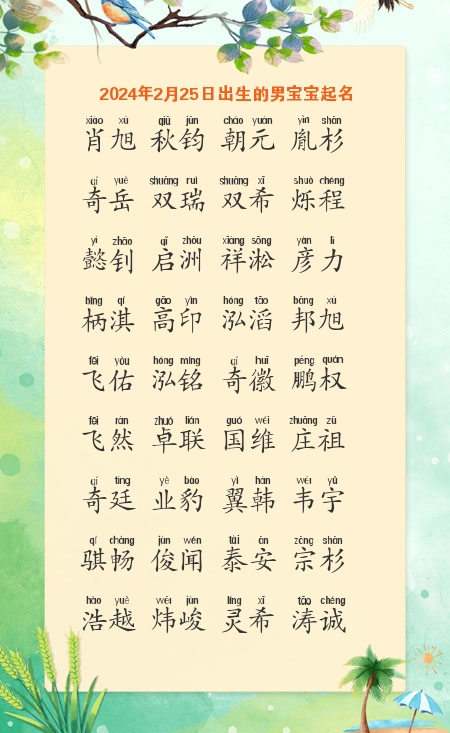 2024年2月25日出生的男宝宝起名
xiāo xù qiū jūn cháo yuán yìn shān
肖旭 秋钧 朝元 胤杉
qí yuè shuāng ruì shuāng xī shuò chéng
奇岳 双瑞 双希 烁程
yì zhāo qǐ zhōu xiáng sōng yàn lì
懿钊 启洲 祥淞 彦力
bǐng qí gāo yìn hóng tāo bāng xù
柄淇 高印 泓滔 邦旭
fēi yòu hóng míng qí huī péng quán
飞佑 泓铭 奇徽 鹏权
fēi rán zhuó lián guó wéi zhuāng zǔ
飞然 卓联 国维 庄祖
qí tíng yè bào yì hán wéi yǔ
奇廷 业豹 翼韩 韦宇
qí chàng jùn wén tài ān zōng shān
骐畅 俊闻 泰安 宗杉
hào yuè wěi jùn líng xī tāo chéng
浩越 炜峻 灵希 涛诚